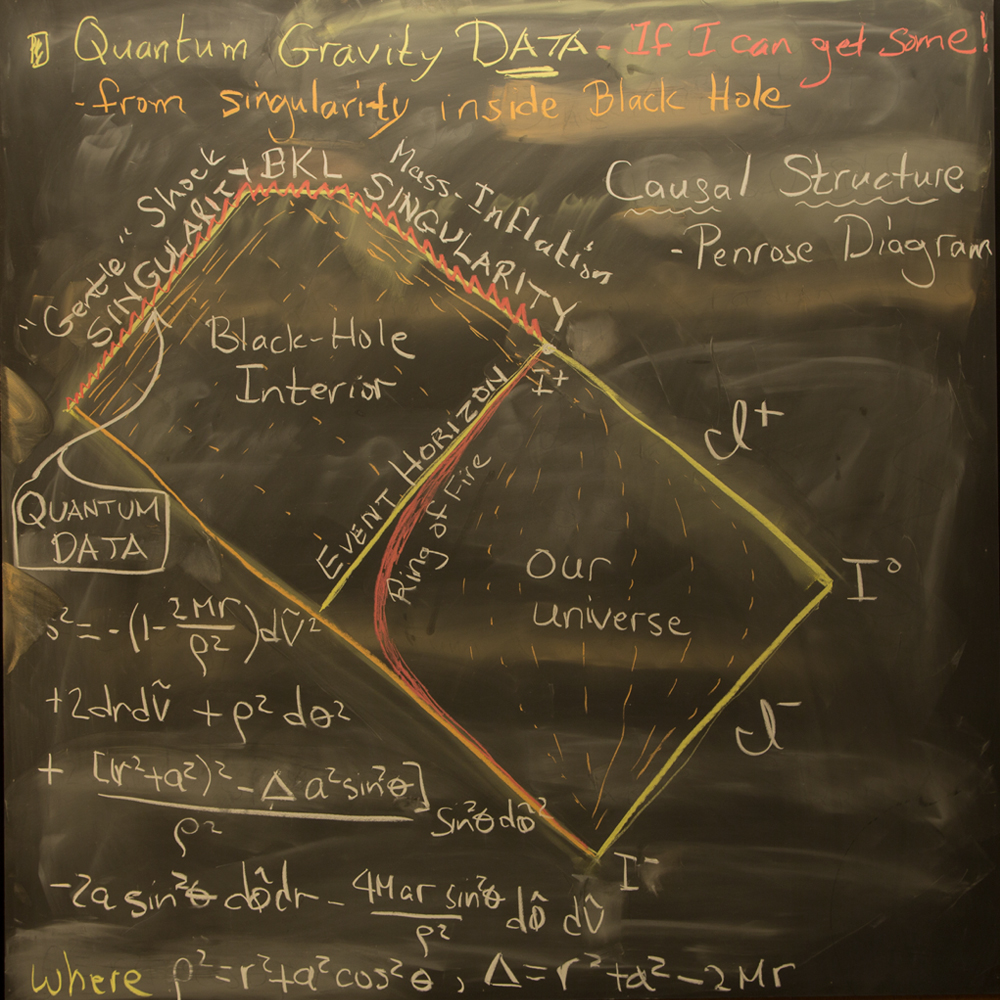 Quantum Gravity DATA - If I can get some!
- from singularity inside Black Hole
Causal Structure
- Penrose Diagram
"Gentle" Shock
SINGULARITY
+ BKL
Mass-Inflation
SINGULARITY
Black-Hole
Interior
I⁺
𝓘⁺
EVENT HORIZON
Ring of Fire
QUANTUM
DATA
Our
universe
I⁰
𝓘⁻
I⁻
s² = -(1 - 2Mr/ρ²)dṽ²
+ 2drdṽ + ρ² dθ²
+ [(r²+a²)² - Δ a² sin²θ]/ρ² sin²θ dφ̃²
- 2a sin²θ dφ̃dr - 4Mar sin²θ/ρ² dφ̃ dṽ
where ρ² = r² + a² cos² θ, Δ = r² + a² - 2Mr